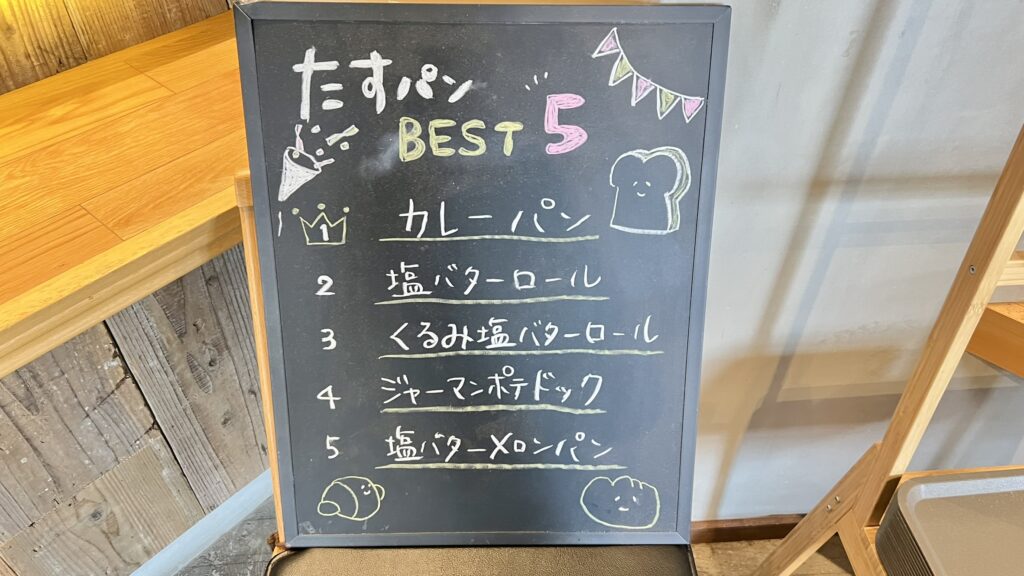 たすパン
BEST 5
1 カレーパン
2 塩バターロール
3 くるみ塩バターロール
4 ジャーマンポテドック
5 塩バターメロンパン